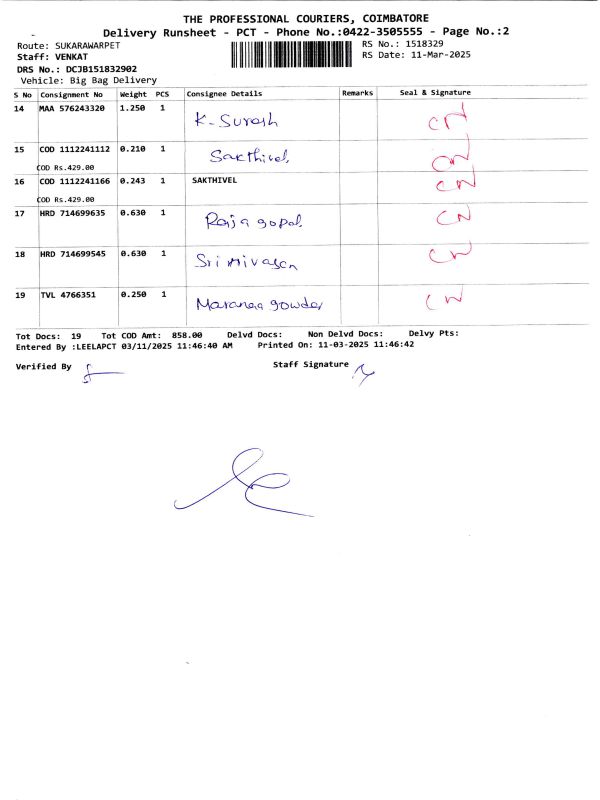 THE PROFESSIONAL COURIERS, COIMBATORE
Delivery Runsheet - PCT - Phone No.:0422-3505555 - Page No.:2
Route: SUKARAWARPET RS No.: 1518329
Staff: VENKAT RS Date: 11-Mar-2025
DRS No.: DCJB151832902
Vehicle: Big Bag Delivery
S No Consignment No Weight PCS Consignee Details Remarks Seal & Signature
14 MAA 576243320 1.250 1 K. Suresh CN
15 COD 1112241112 0.210 1 Sakthivel, CN
COD Rs.429.00
16 COD 1112241166 0.243 1 SAKTHIVEL CN
COD Rs.429.00
17 HRD 714699635 0.630 1 Raja gopal. CN
18 HRD 714699545 0.630 1 Srinivasan CN
19 TVL 4766351 0.250 1 gowder CN
Tot Docs: 19 Tot COD Amt: 858.00 Delvd Docs: Non Delvd Docs: Delvy Pts:
Entered By :LEELAPCT 03/11/2025 11:46:40 AM Printed On: 11-03-2025 11:46:42
Verified By Staff Signature